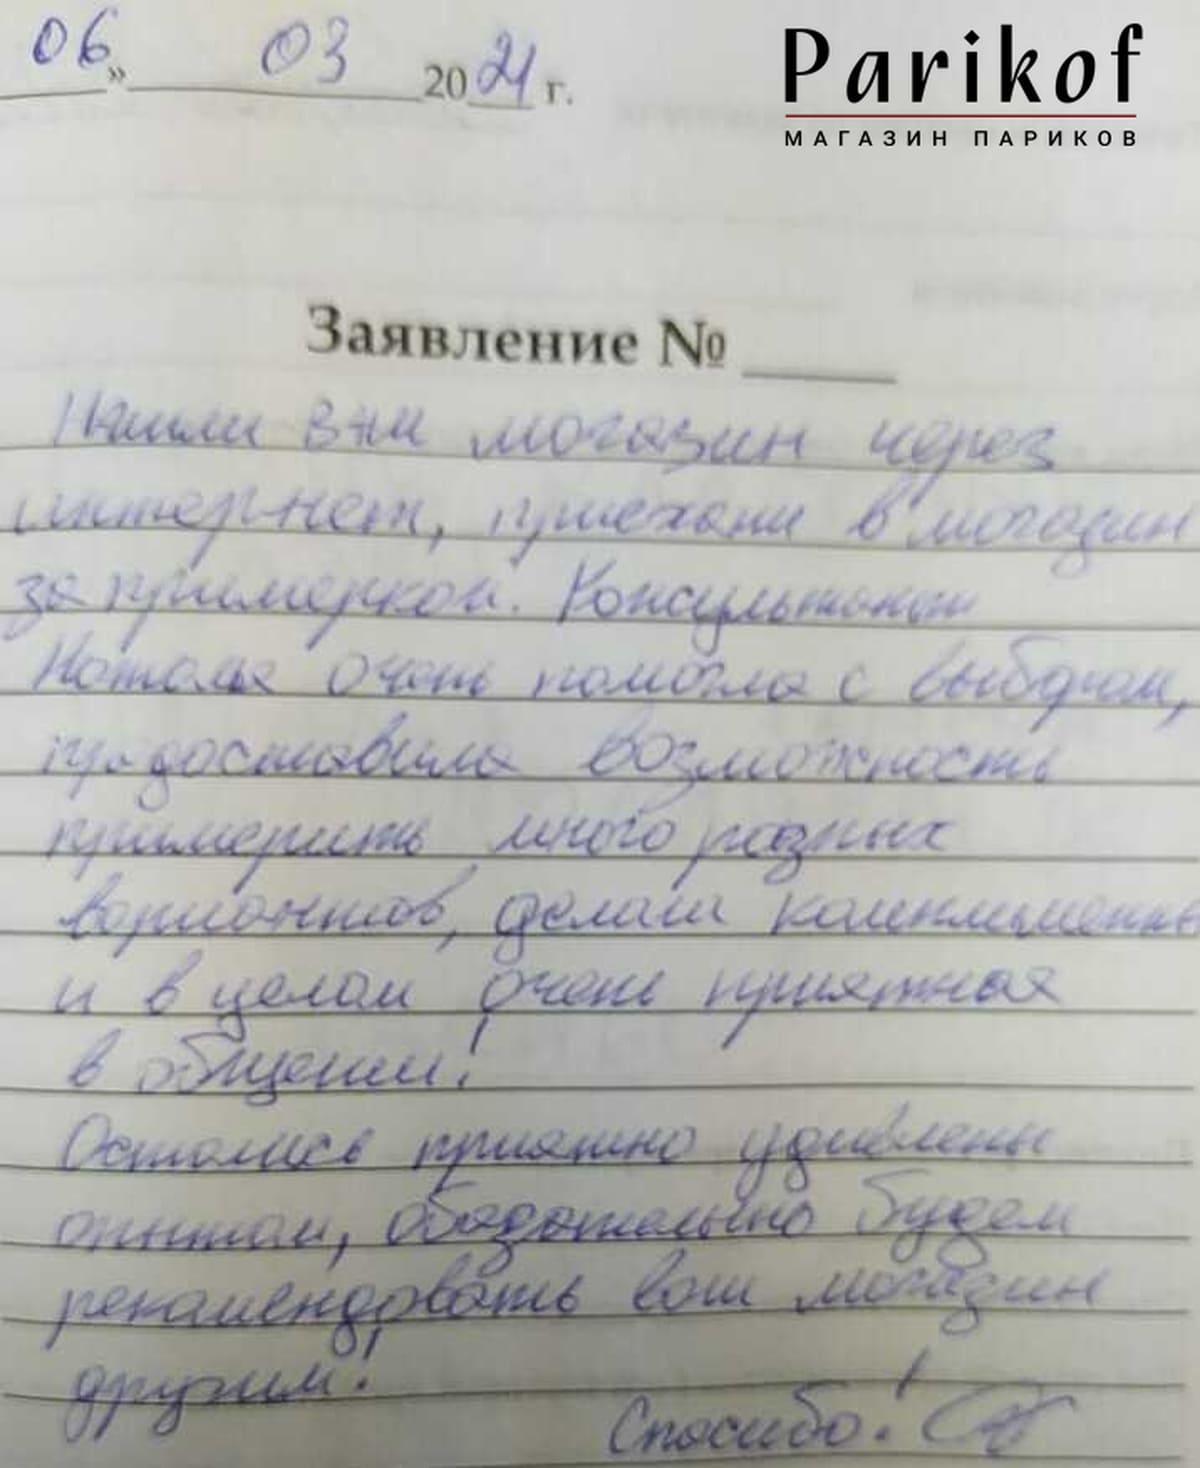 06 » 03 2021 г.
Parikof
МАГАЗИН ПАРИКОВ
Заявление № ____
Нашли ваш магазин через
интернет, приехали в магазин
за примеркой. Консультант
Наталья очень помогла с выбором,
предоставила возможность
примерить много разных
вариантов, делала комплименты
и в целом очень приятная
в общении!
Остались приятно удивлены
опытом, обязательно будем
рекомендовать ваш магазин
друзьям!
Спасибо!